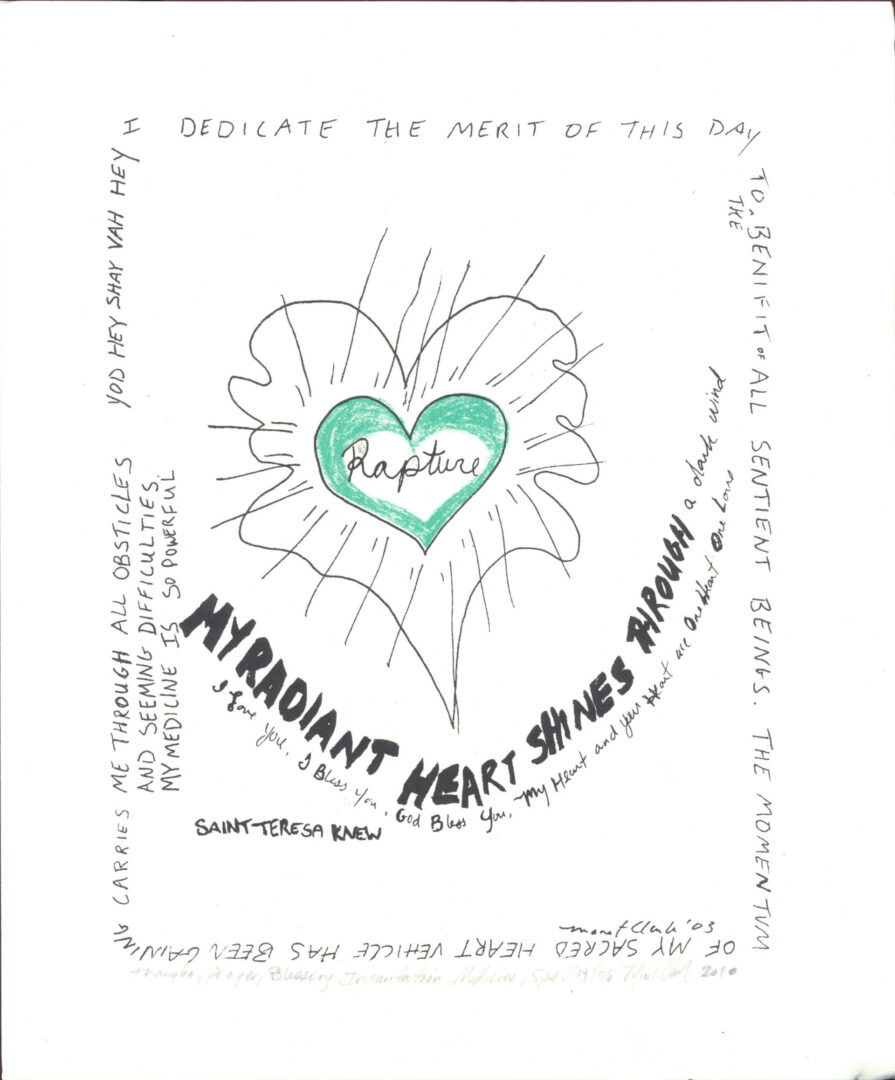 I DEDICATE THE MERIT OF THIS DAY
TO THE BENIFIT OF ALL SENTIENT BEINGS. THE MOMENTUM
OF MY SACRED HEART VEHICLE HAS BEEN GAINING
CARRIES ME THROUGH ALL OBSTICLES
AND SEEMING DIFFICULTIES.
MY MEDICINE IS SO POWERFUL
YOD HEY SHAY VAH HEY
Rapture
MY RADIANT HEART SHINES THROUGH a dark wind
I love you, I Bless You, God Bless You, My Heart and your Heart are One Heart One Love
SAINT TERESA KNEW
'03
Prayer, Blessing, Incantation, Medicine, Spell 2010